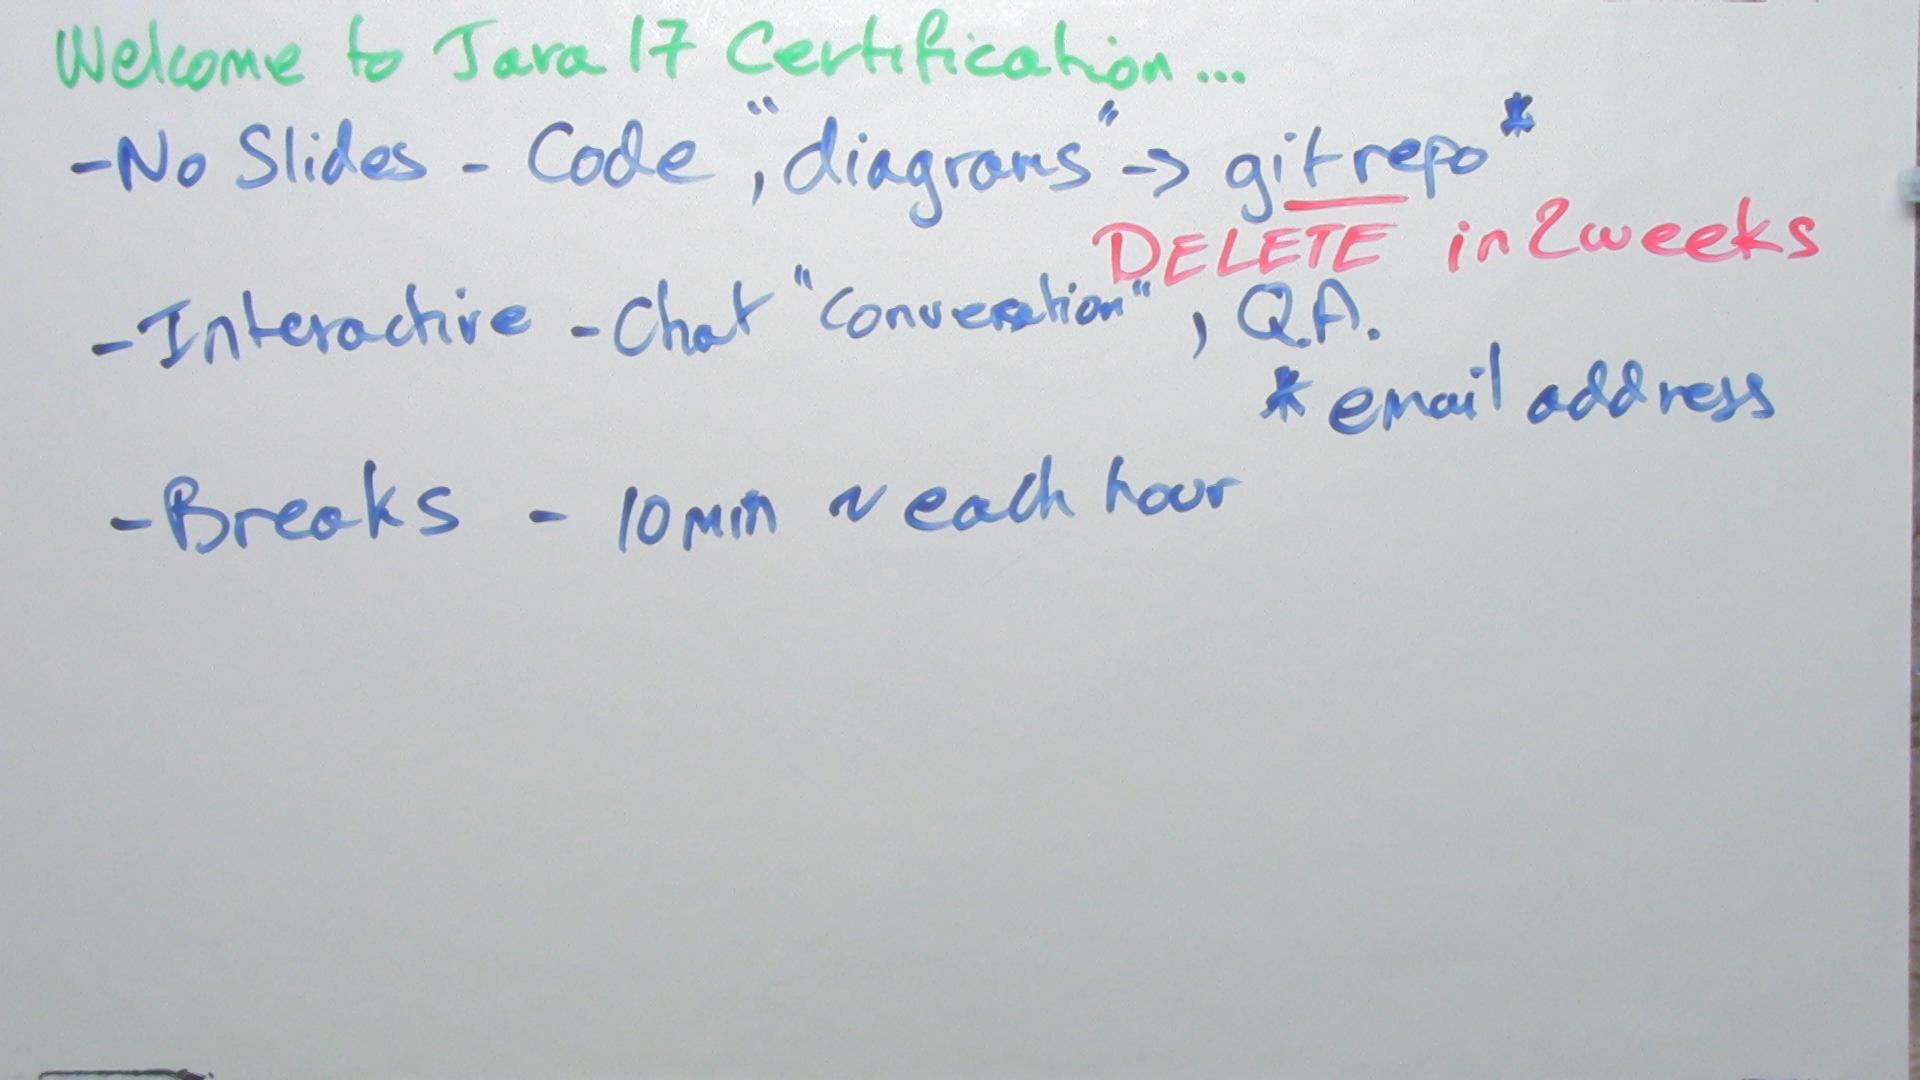 Welcome to Java 17 Certification...
- No Slides - Code, "diagrams" -> git repo*
DELETE in 2 weeks
- Interactive - Chat "conversation", Q.A.
* email address
- Breaks - 10 min ~ each hour